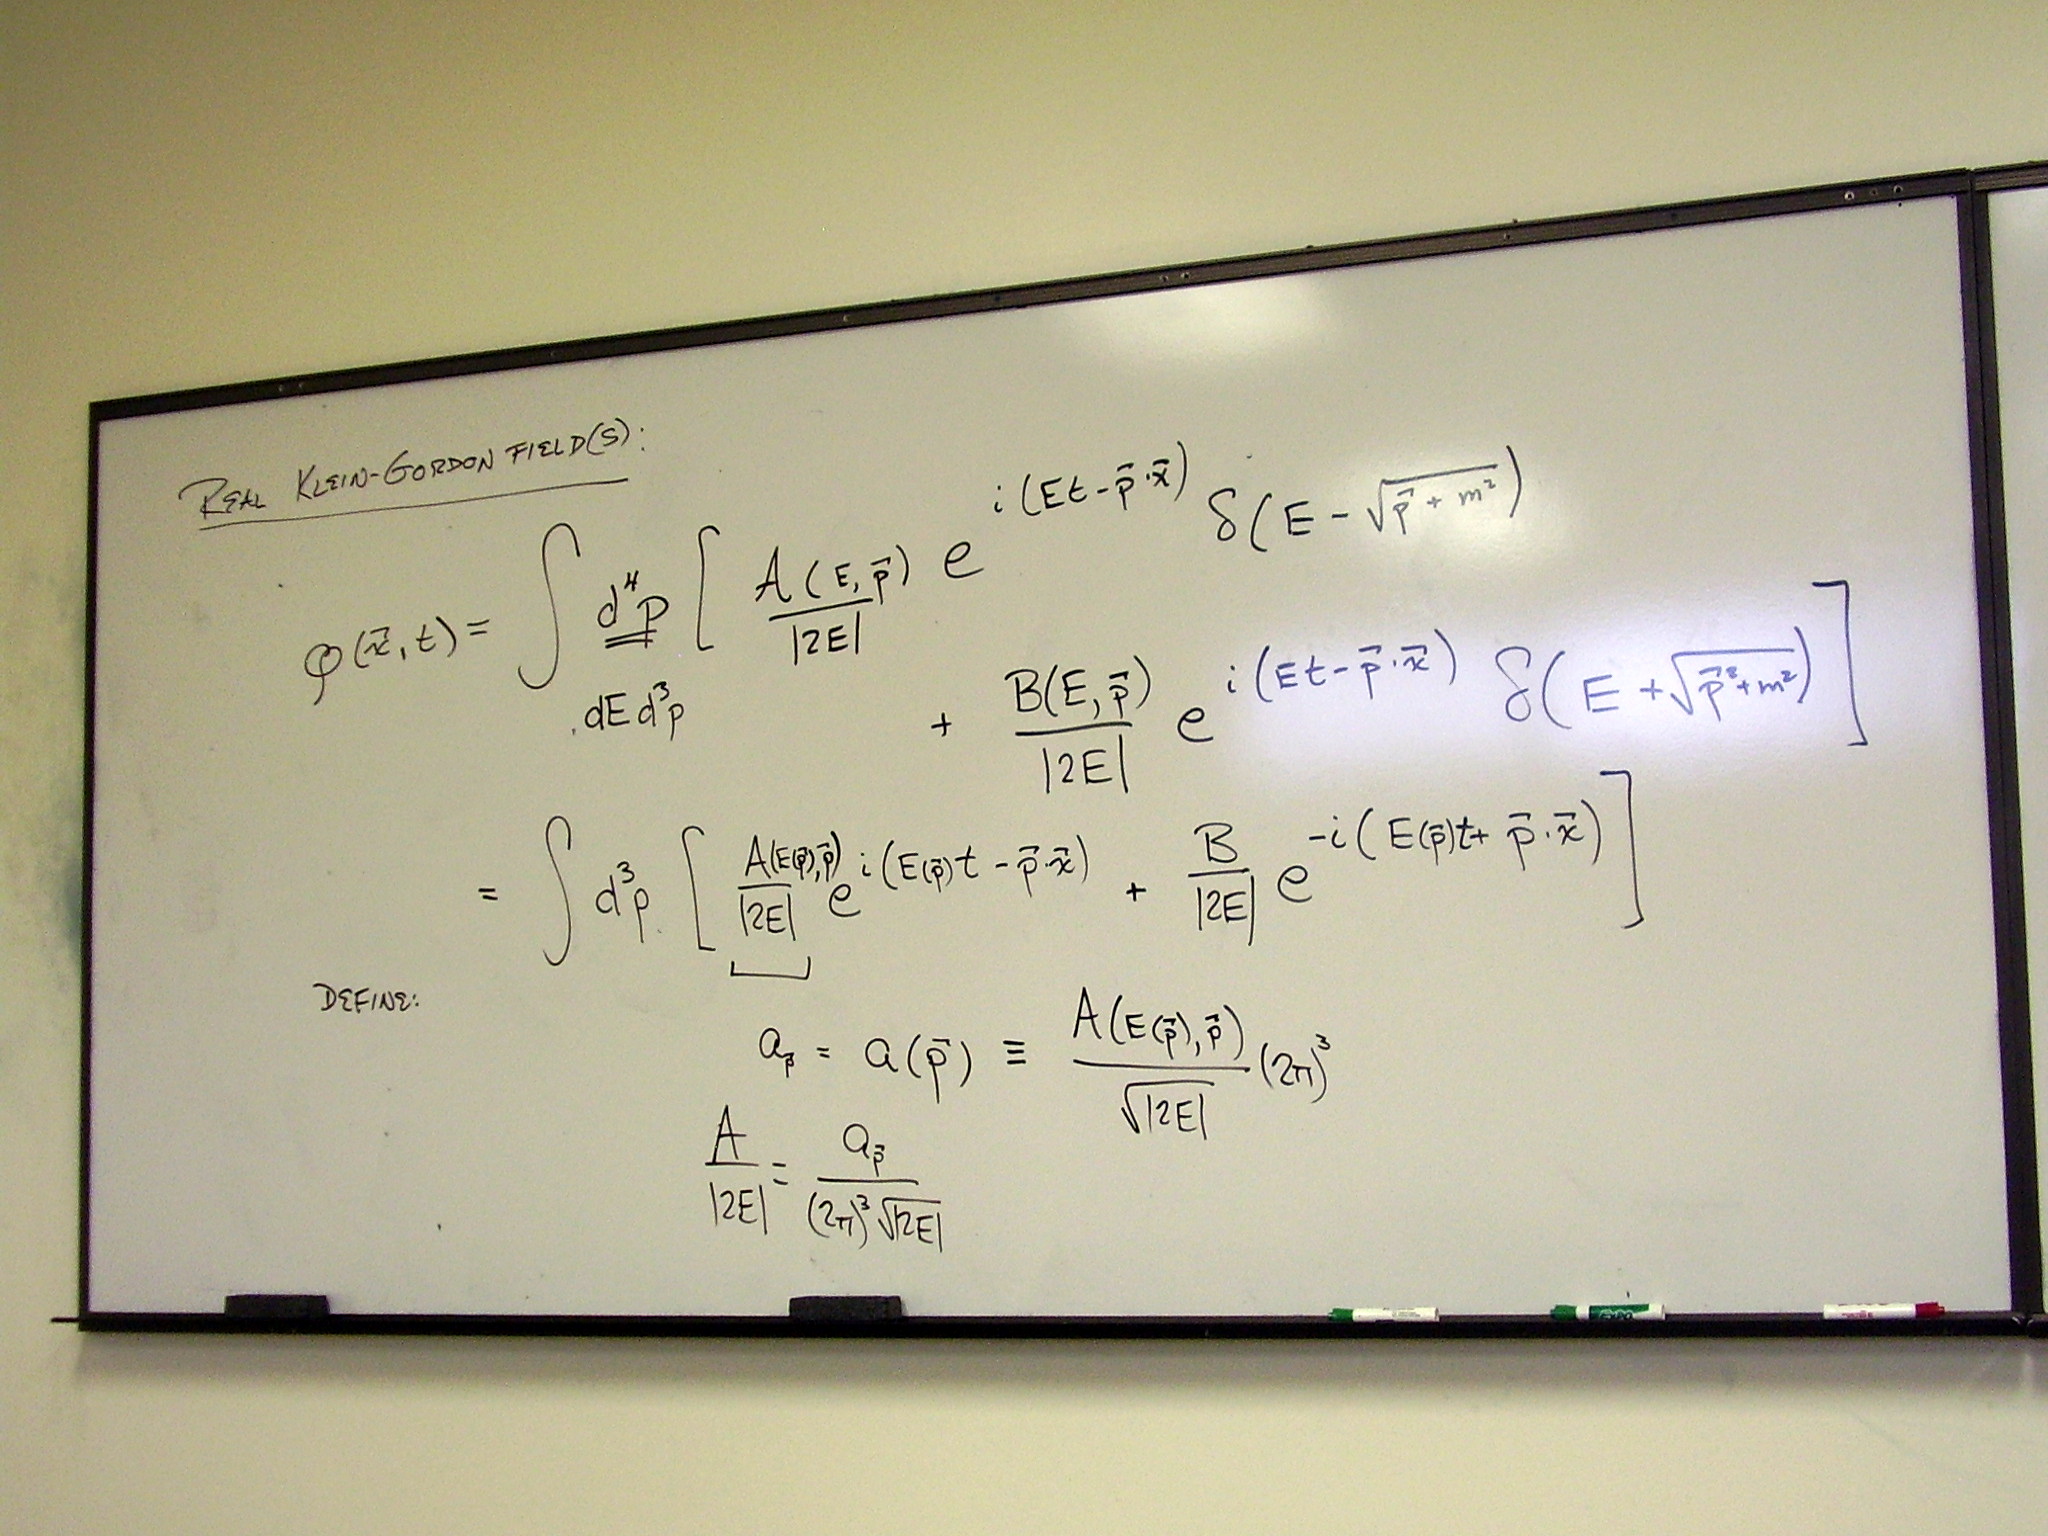 REAL KLEIN-GORDON FIELD(S):
φ(x⃗, t) = ∫ d⁴p [ A(E, p⃗)/|2E| e^{i(Et - p⃗·x⃗)} δ(E - √(p⃗ + m²))
dE d³p + B(E, p⃗)/|2E| e^{i(Et - p⃗·x⃗)} δ(E + √(p⃗² + m²)) ]
= ∫ d³p [ A(E(p⃗), p⃗)/|2E| e^{i(E(p⃗)t - p⃗·x⃗)} + B/|2E| e^{-i(E(p⃗)t + p⃗·x⃗)} ]
DEFINE:
a_p⃗ = a(p⃗) ≡ A(E(p⃗), p⃗)/√|2E| (2π)³
A/|2E| = a_p⃗/((2π)³ √|2E|)